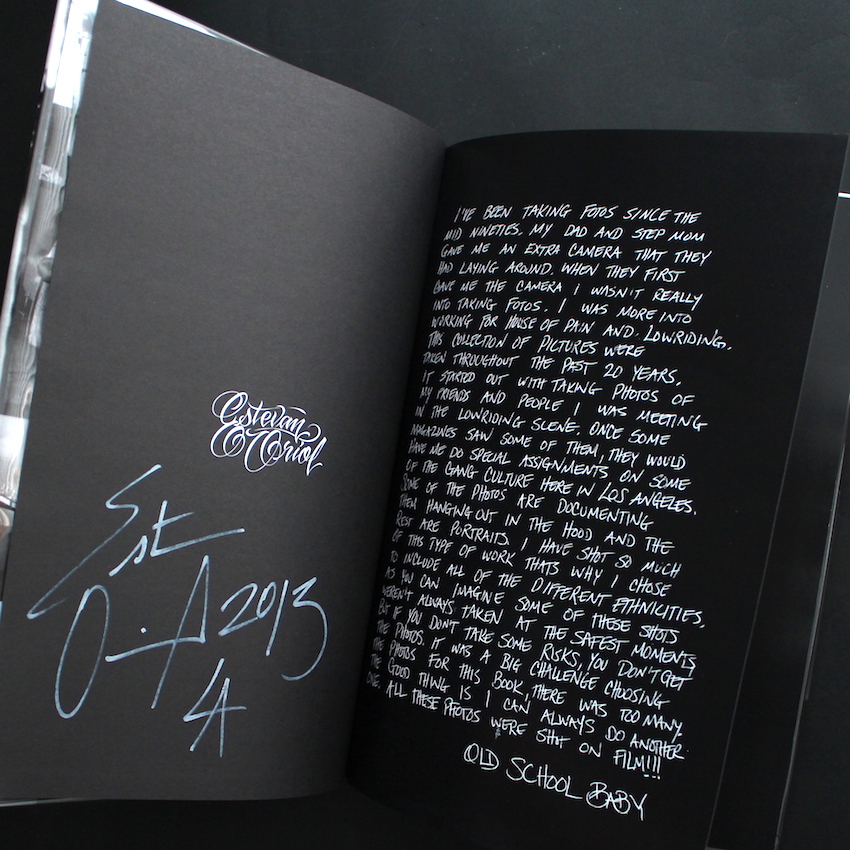 Estevan
Oriol
Est
2013
LA
I'VE BEEN TAKING FOTOS SINCE THE
MID NINETIES. MY DAD AND STEP MOM
GAVE ME AN EXTRA CAMERA THAT THEY
HAD LAYING AROUND. WHEN THEY FIRST
GAVE ME THE CAMERA I WASN'T REALLY
INTO TAKING FOTOS. I WAS MORE INTO
WORKING FOR HOUSE OF PAIN AND LOWRIDING.
THIS COLLECTION OF PICTURES WERE
TAKEN THROUGHOUT THE PAST 20 YEARS,
IT STARTED OUT WITH TAKING PHOTOS OF
MY FRIENDS AND PEOPLE I WAS MEETING
IN THE LOWRIDING SCENE. ONCE SOME
MAGAZINES SAW SOME OF THEM, THEY WOULD
HAVE ME DO SPECIAL ASSIGNMENTS ON SOME
OF THE GANG CULTURE HERE IN LOS ANGELES.
SOME OF THE PHOTOS ARE DOCUMENTING
THEM HANGING OUT IN THE HOOD AND THE
REST ARE PORTRAITS. I HAVE SHOT SO MUCH
OF THIS TYPE OF WORK THATS WHY I CHOSE
TO INCLUDE ALL OF THE DIFFERENT ETHNICITIES,
AS YOU CAN IMAGINE SOME OF THESE SHOTS
WEREN'T ALWAYS TAKEN AT THE SAFEST MOMENTS
BUT IF YOU DON'T TAKE SOME RISKS, YOU DON'T GET
THE PHOTOS. IT WAS A BIG CHALLENGE CHOOSING
THE PHOTOS FOR THIS BOOK, THERE WAS TOO MANY.
THE GOOD THING IS I CAN ALWAYS DO ANOTHER
ONE. ALL THESE PHOTOS WERE SHOT ON FILM!!!
OLD SCHOOL BABY